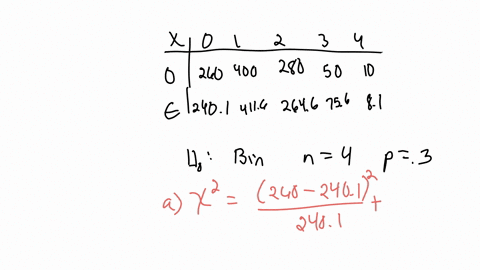 X 0 1 2 3 4
O 260 400 280 50 10
E 240.1 411.6 264.6 75.6 8.1
H₀: Bin n=4 p=.3
a) χ² = (260-240.1)²/240.1 +